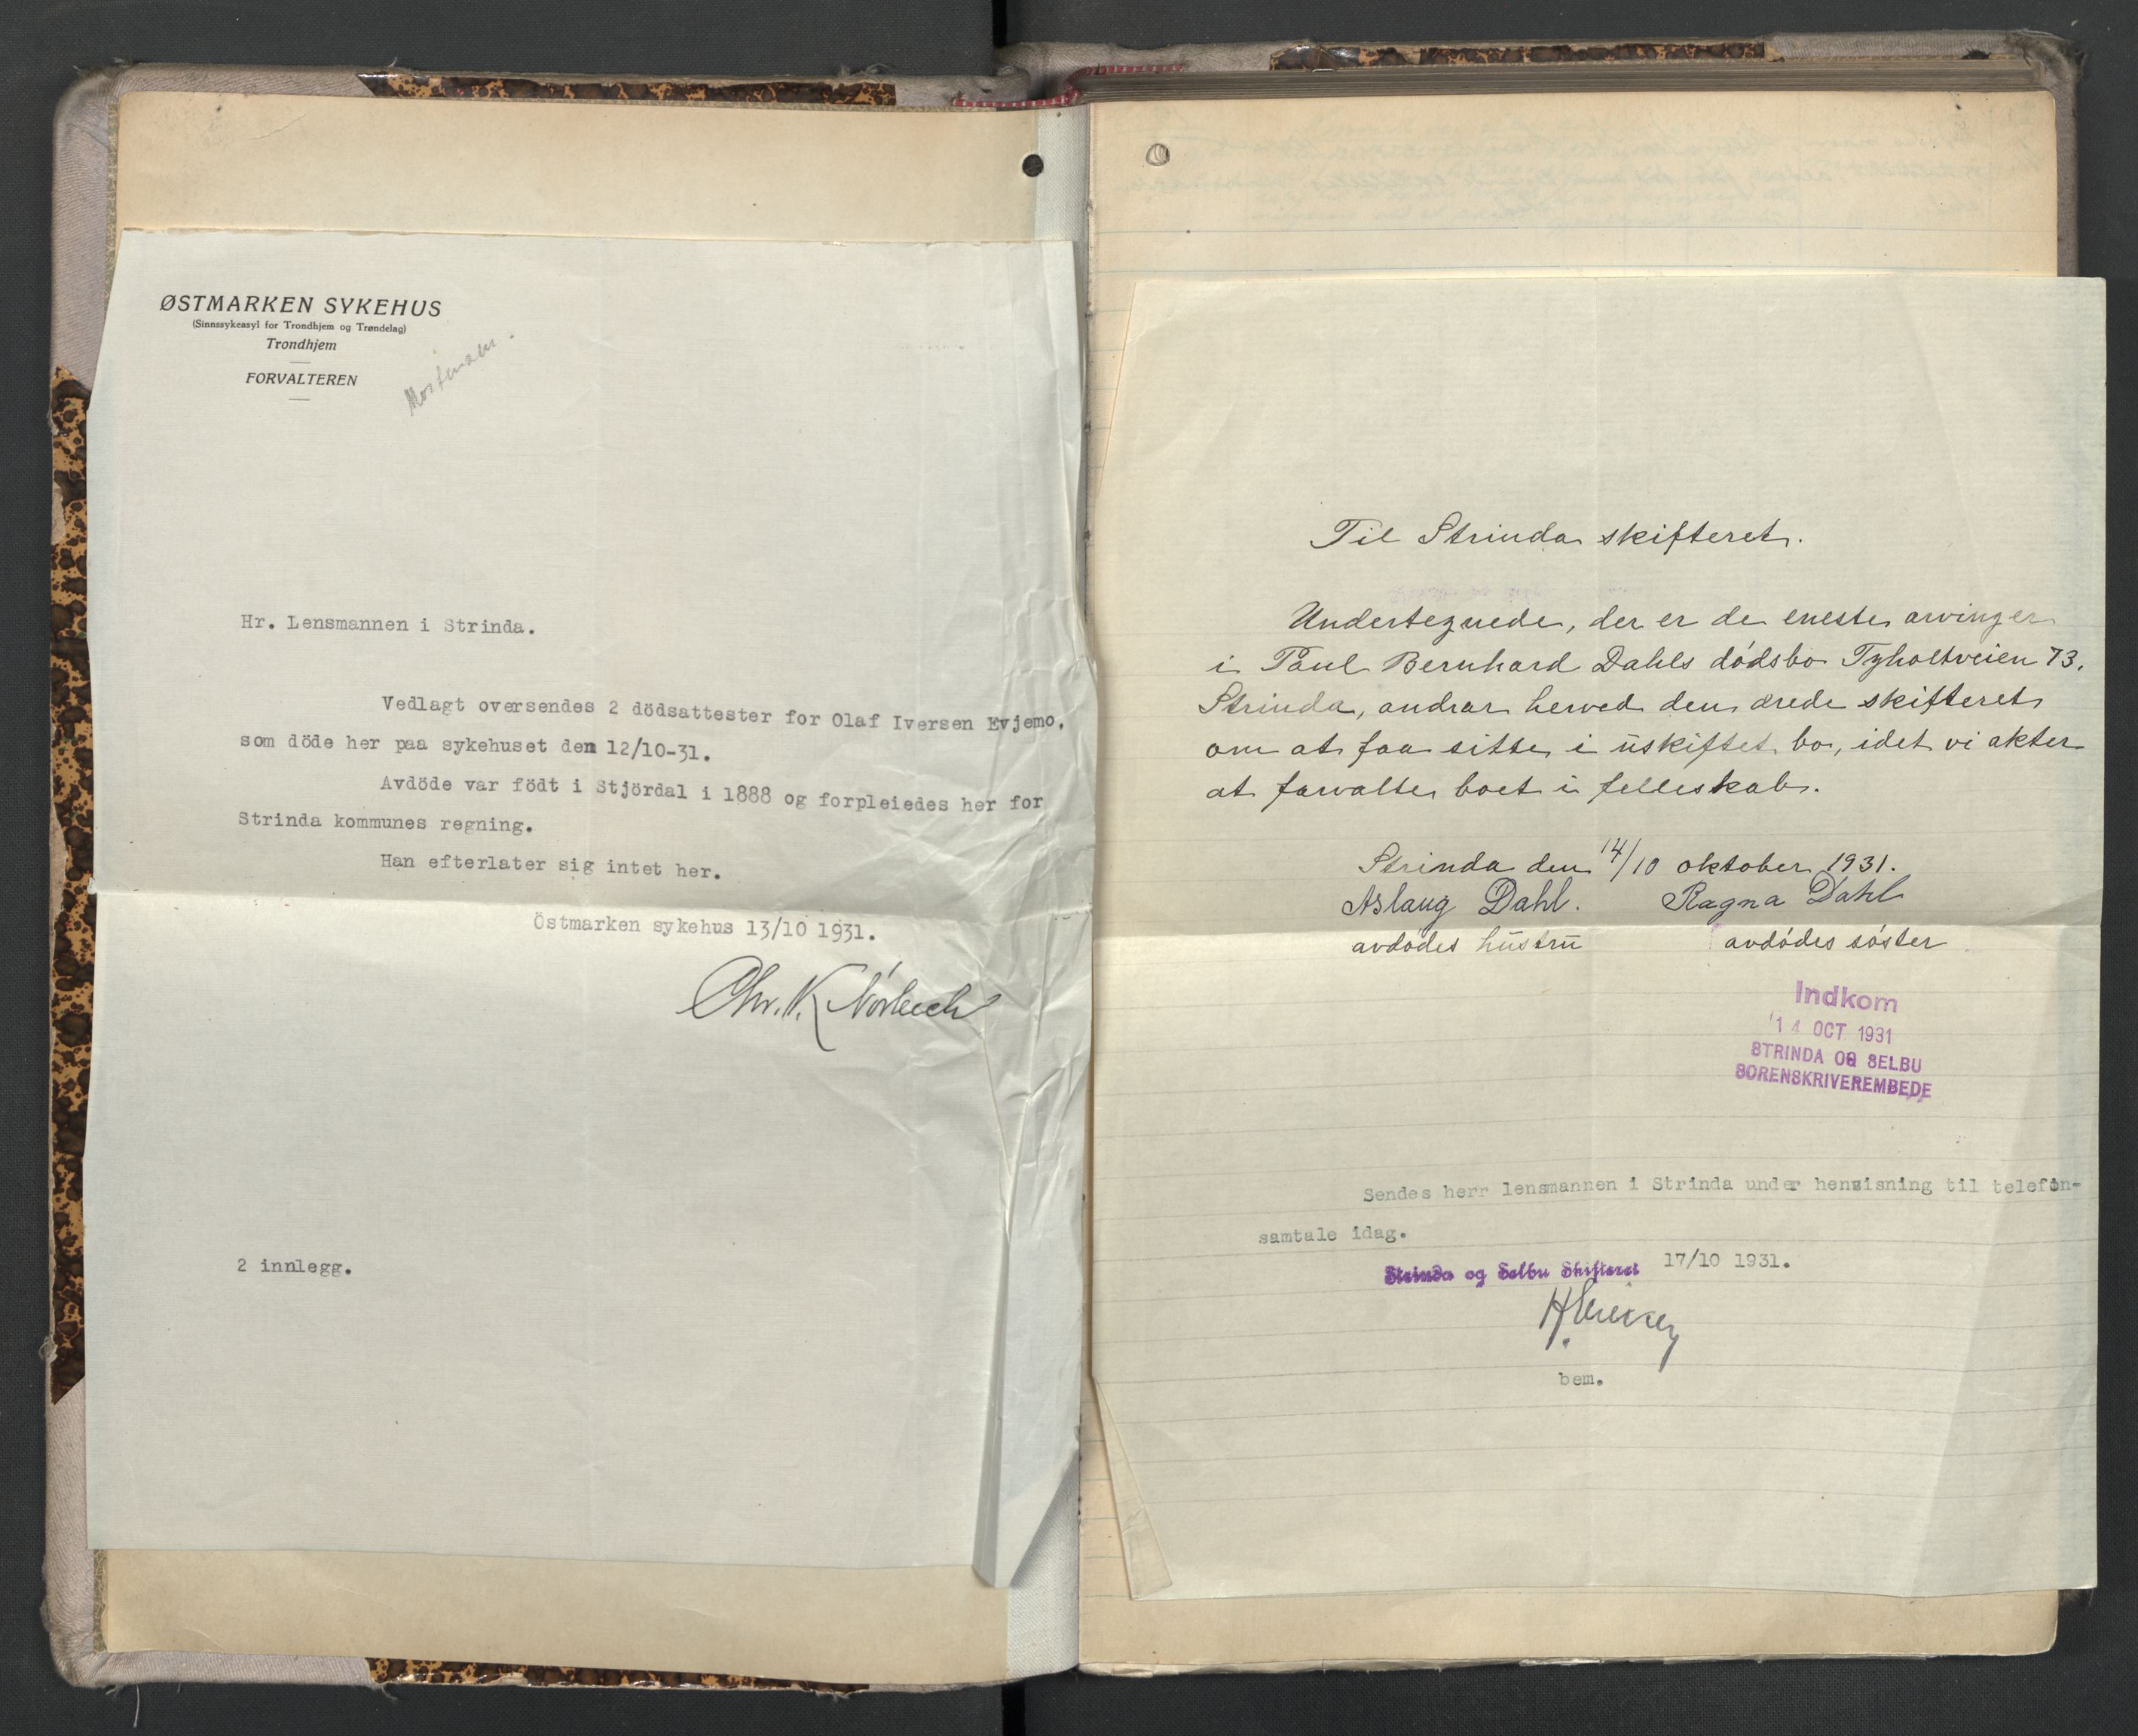 ØSTMARKEN SYKEHUS
(Sinnssykeasyl for Trondhjem og Trøndelag)
Trondhjem
FORVALTEREN
Hr. Lensmannen i Strinda.
Vedlagt oversendes 2 dödsattester for Olaf Iversen Evjemo,
som döde her paa sykehuset den 12/10-31.
Avdöde var födt i Stjördal i 1888 og forpleiedes her for
Strinda kommunes regning.
Han efterlater sig intet her.
Östmarken sykehus 13/10 1931.
Chr. K.
2 innlegg.
Til Strinda skifteret.
Undertegnede, der er de eneste arvinger
i Paul Bernhard Dahls dödsbo Tyholtveien 73.
Strinda, andrar herved den ærede skifteret
om at faa sitte i uskiftet bo, idet vi akter
at forvalte boet i felleskab.
Strinda den 14/10 oktober 1931.
Aslaug Dahl. Ragna Dahl
avdödes hustru avdödes söster
Indkom
14 OCT 1931
STRINDA OG SELBU
SORENSKRIVEREMBEDE
Sendes herr lensmannen i Strinda under henvisning til telefon-
samtale idag.
Strinda og Selbu Skifteret 17/10 1931.
bem.